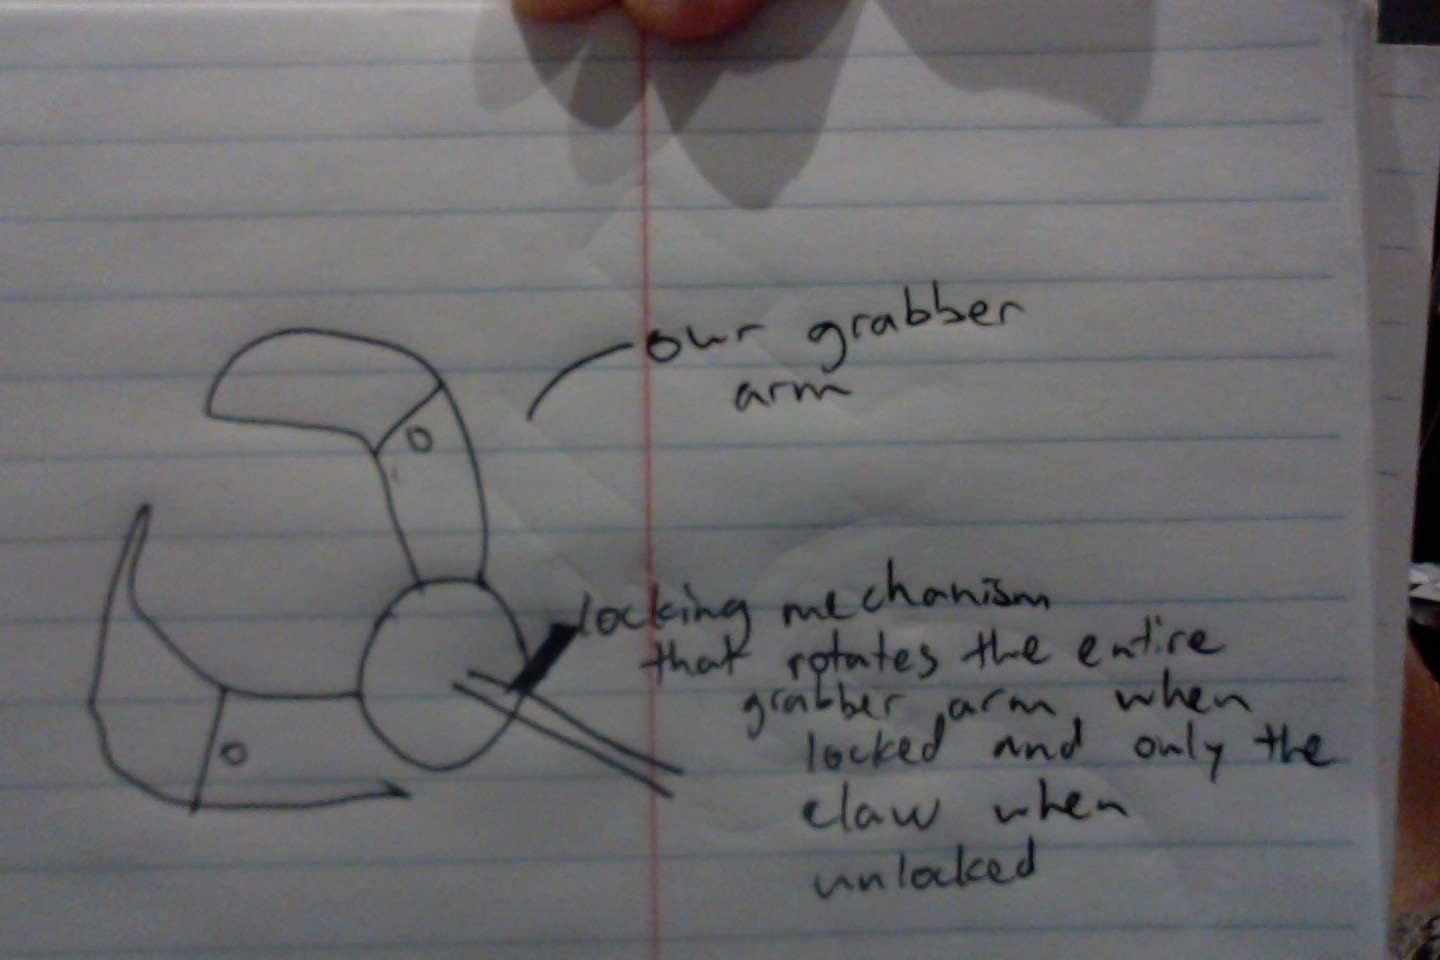 our grabber
arm
locking mechanism
that rotates the entire
grabber arm, when
locked and only the
claw when
unlocked